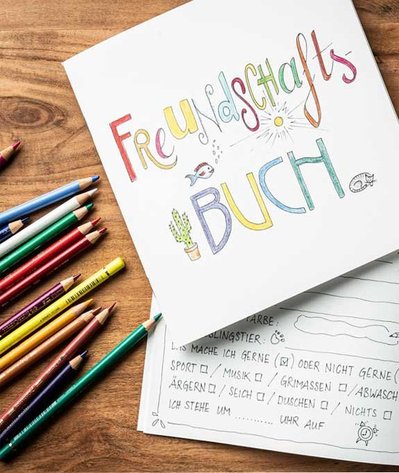 FREUNDSCHAFTS
BUCH
FARBE:
LINGSTIER:
MACHE ICH GERNE (☒) ODER NICHT GERNE (
SPORT ☐ / MUSIK ☐ / GRIMASSEN ☐ / ABWASCH
ÄRGERN ☐ / SEICH ☐ / DUSCHEN ☐ / NICHTS ☐
ICH STEHE UM ........... UHR AUF